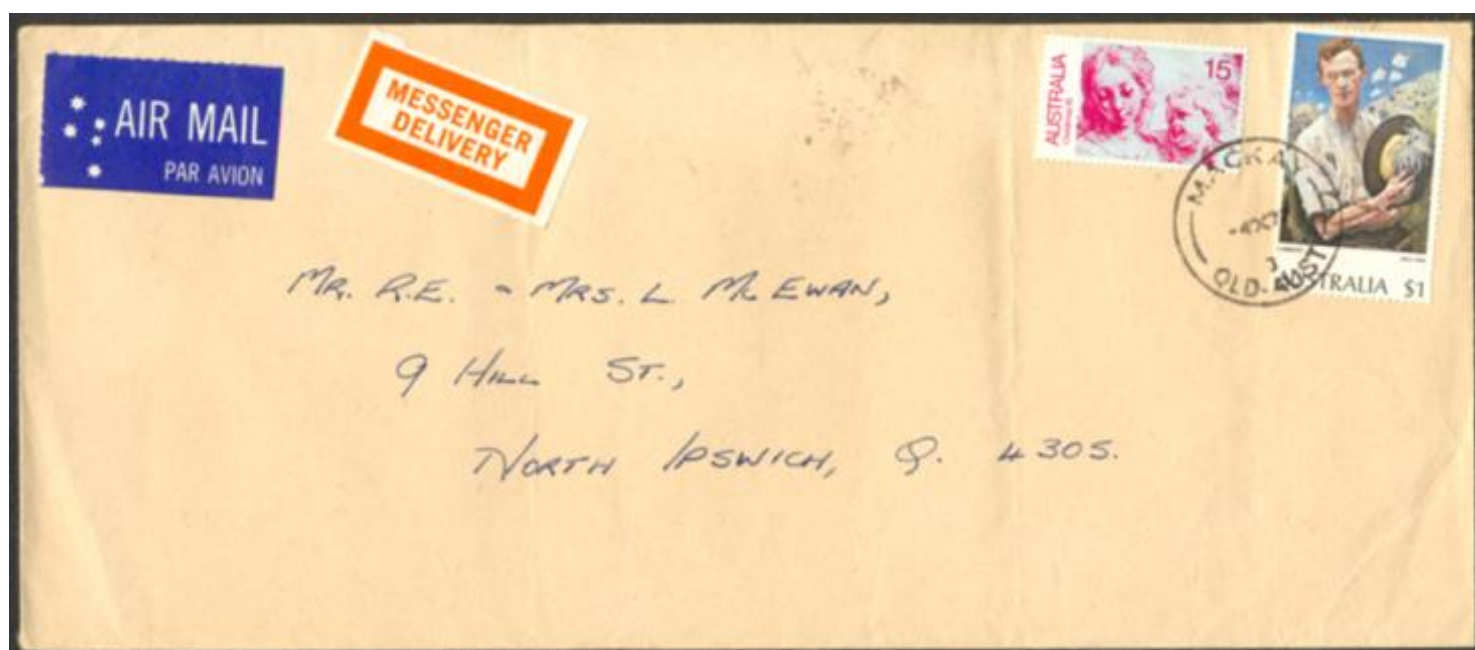 AIR MAIL
PAR AVION
MESSENGER
DELIVERY
AUSTRALIA
15
AUSTRALIA $1
MACKAY
QLD-AUST
MR. R.E. & MRS. L. MCEWAN,
9 HILL ST.,
NORTH IPSWICH, Q. 4305.